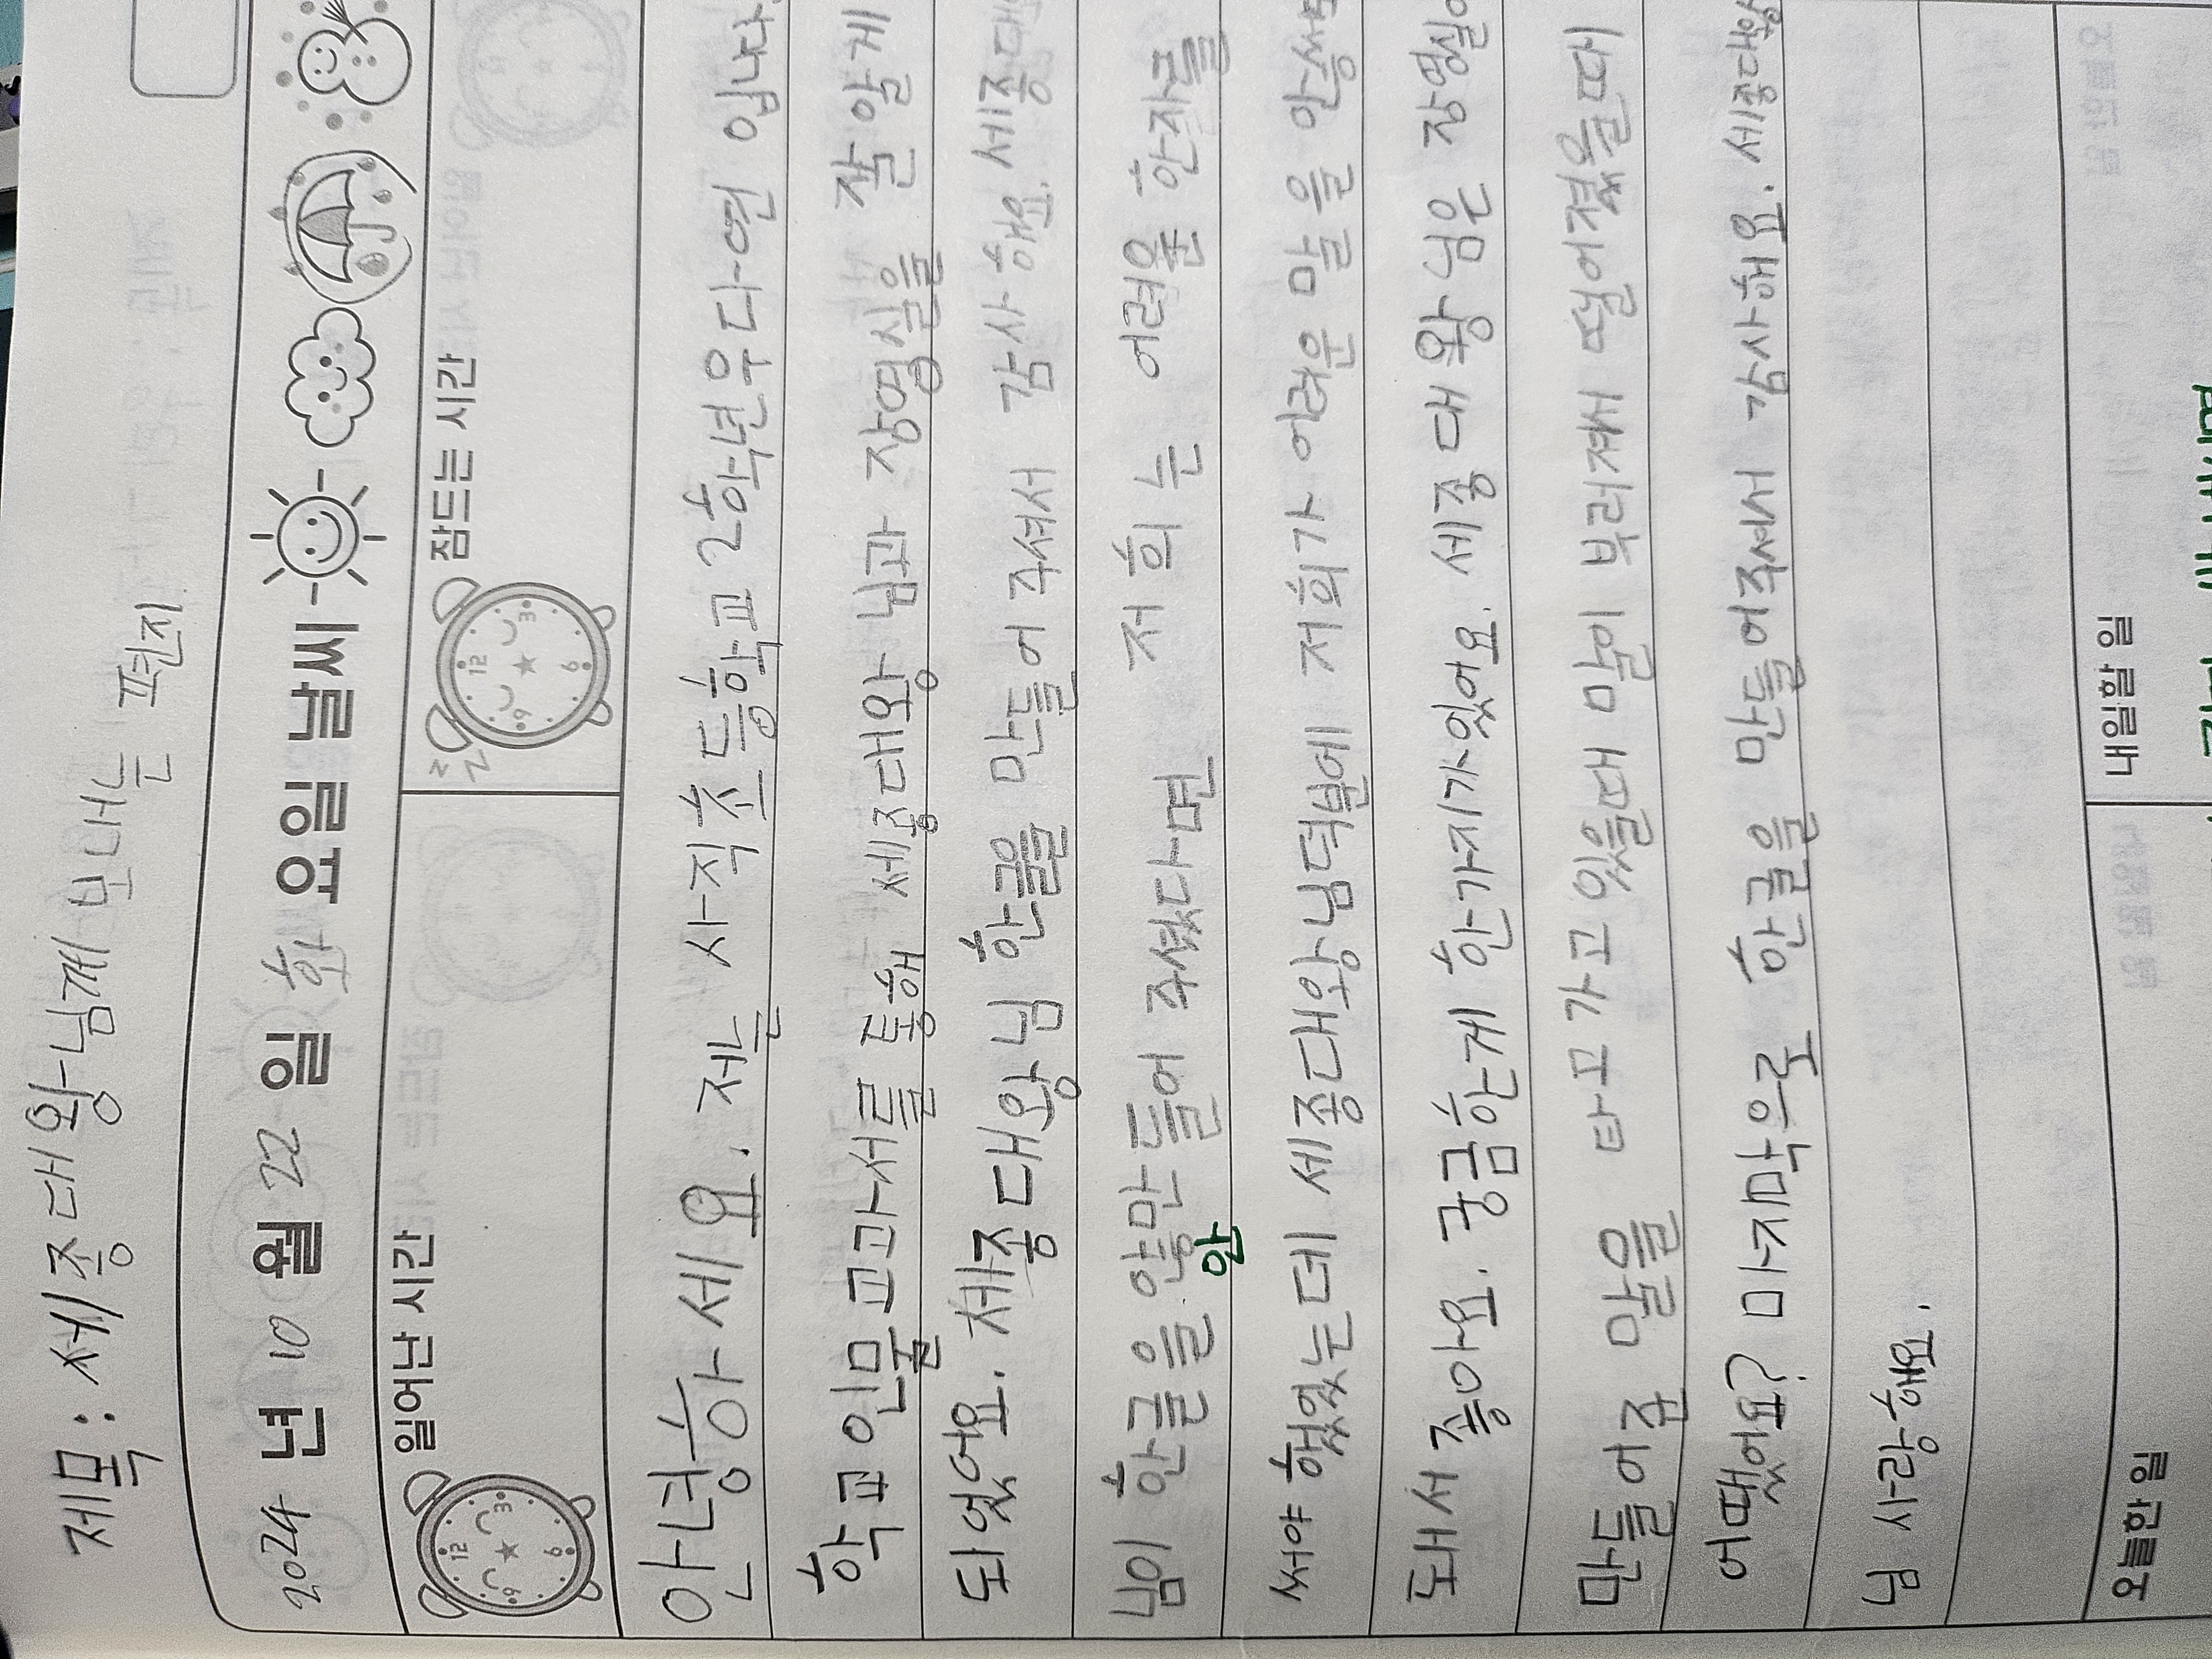 제목: 세종대왕님께 보내는 편지
2024 년 10 월 22 일 화 요일 날씨
일어난 시간
잠드는 시간
안녕하세요. 저는 사직초등학교 2학년우다연 입니다.
학교인물교과서를 통해 세종대왕 님과 장영실을 잘 알게
되었어요. 세종대왕님 한글을 만들어 주셔서 감사해요. 세종대
님이 한글을 않만들어 주셨다면 저희는 어려운 한자를
안
써야 했었는데 세종대왕님덕분에 저희가 어려운 말을 안써도
돼서 좋아요. 궁금한게 한가지가있어요. 세종대왕님은 장영실이
만들어준 말을 타고가고있을때 말이 부러져서 떨어졌을때
어땠어요? 마지막으로 한글을 만들어주셔서 감사해요. 세종대왕
님 사랑해요.
오늘한 일
내일할 일